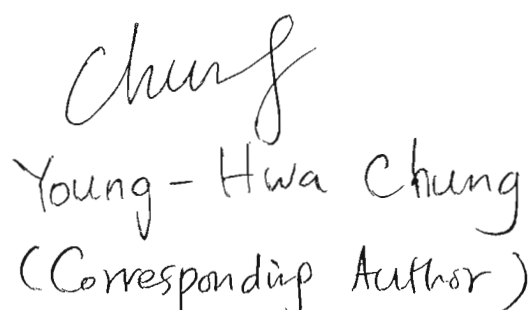 Chung
Young-Hwa Chung
(Corresponding Author)